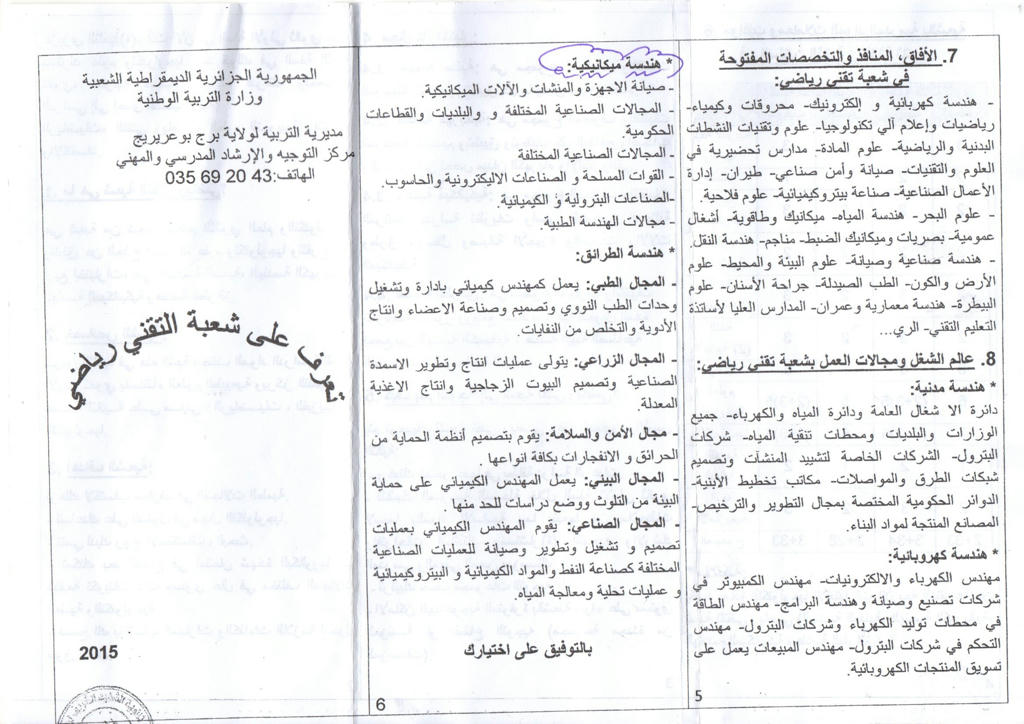 7. الأفاق، المنافذ والتخصصات المفتوحة
في شعبة تقني رياضي:
- هندسة كهربائية و إلكترونيك- محروقات وكيمياء-
رياضيات وإعلام آلي تكنولوجيا- علوم وتقنيات النشطات
البدنية والرياضية- علوم المادة- مدارس تحضيرية في
العلوم والتقنيات- صيانة وأمن صناعي- طيران- إدارة
الأعمال الصناعية- صناعة بيتروكيميائية- علوم فلاحية.
- علوم البحر- هندسة المياه- ميكانيك وطاقوية- أشغال
عمومية- بصريات وميكانيك الضبط- مناجم- هندسة النقل.
- هندسة صناعية وصيانة- علوم البيئة والمحيط- علوم
الأرض والكون- الطب الصيدلة- جراحة الأسنان- علوم
البيطرة- هندسة معمارية وعمران- المدارس العليا لأساتذة
التعليم التقني- الري...
8. عالم الشغل ومجالات العمل بشعبة تقني رياضي:
* هندسة مدنية:
دائرة الا شغال العامة ودائرة المياه والكهرباء- جميع
الوزارات والبلديات ومحطات تنقية المياه- شركات
البترول- الشركات الخاصة لتشييد المنشآت وتصميم
شبكات الطرق والمواصلات- مكاتب تخطيط الأبنية-
الدوائر الحكومية المختصة بمجال التطوير والترخيص-
المصانع المنتجة لمواد البناء.
* هندسة كهروبائية:
مهندس الكهرباء والالكترونيات- مهندس الكمبيوتر في
شركات تصنيع وصيانة وهندسة البرامج- مهندس الطاقة
في محطات توليد الكهرباء وشركات البترول- مهندس
التحكم في شركات البترول- مهندس المبيعات يعمل على
تسويق المنتجات الكهروبائية.
5
* هندسة ميكانيكية:
- صيانة الاجهزة والمنشات والآلات الميكانيكية.
- المجالات الصناعية المختلفة و والبلديات والقطاعات
الحكومية.
- المجالات الصناعية المختلفة
- القوات المسلحة و الصناعات الاليكترونية والحاسوب.
-الصناعات البترولية و الكيميائية.
- مجالات الهندسة الطبية.
* هندسة الطرائق:
- المجال الطبي: يعمل كمهندس كيميائي بادارة وتشغيل
وحدات الطب النووي وتصميم وصناعة الاعضاء وانتاج
الأدوية والتخلص من النفايات.
- المجال الزراعي: يتولى عمليات انتاج وتطوير الاسمدة
الصناعية وتصميم البيوت الزجاجية وانتاج الاغذية
المعدلة.
- مجال الأمن والسلامة: يقوم بتصميم أنظمة الحماية من
الحرائق و الانفجارات بكافة انواعها.
- المجال البيئي: يعمل المهندس الكيميائي على حماية
البيئة من التلوث ووضع دراسات للحد منها
- المجال الصناعي: يقوم المهندس الكيميائي بعمليات
تصميم و تشغيل وتطوير وصيانة للعمليات الصناعية
المختلفة كصناعة النفط والمواد الكيميائية و البيتروكيميائية
و عمليات تحلية ومعالجة المياه.
بالتوفيق على اختيارك
6
الجمهورية الجزائرية الديمقراطية الشعبية
وزارة التربية الوطنية
مديرية التربية لولاية برج بوعريريج
مركز التوجيه والإرشاد المدرسي والمهني
الهاتف:43 20 69 035
تعرف على شعبة التقني رياضي
2015